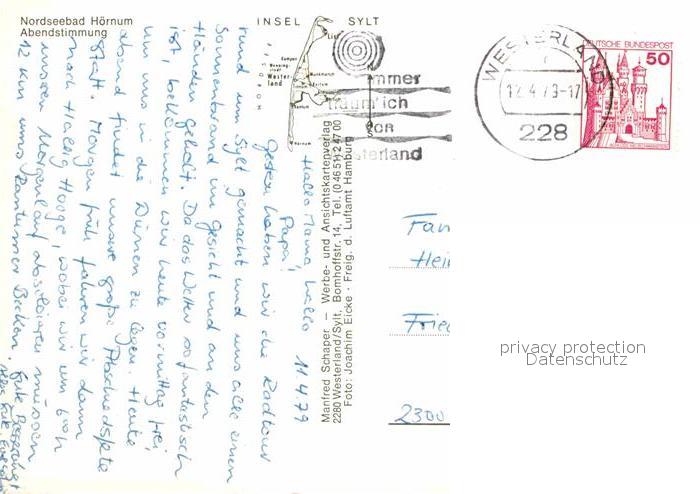 Nordseebad Hörnum
Abendstimmung
INSEL SYLT
List
Kampen
Westerland
Hörnum
Immer
räumlich
vor
Westerland
WESTERLAND
12.4.79-17
228
DEUTSCHE BUNDESPOST
50
Manfred Schaper — Werbe- und Ansichtskartenverlag
2280 Westerland/Sylt, Bomhoffstr. 14, Tel. (0 46 51) 2 47 00
Foto: Joachim Eicke · Freig. d. Luftamt Hamburg
11.4.79
Hallo Mama, hallo
Papa!
Gestern haben wir die Radtour
rund um Sylt gemacht und uns alle einen
Sonnenbrand im Gesicht und an den
Händen geholt. Da das Wetter so fantastisch
ist, bekommen wir heute vormittag frei,
um uns in die Dünen zu legen. Heute
abend findet unsere große Abschiedsfete
statt. Morgen früh fahren wir dann
nach Hallig Hooge, wobei wir um 6 Uh
unseren Morgenlauf absolvieren müssen
12 km ums Rantumer Becken.
Fam
Hei
Fried
2300
privacy protection
Datenschutz